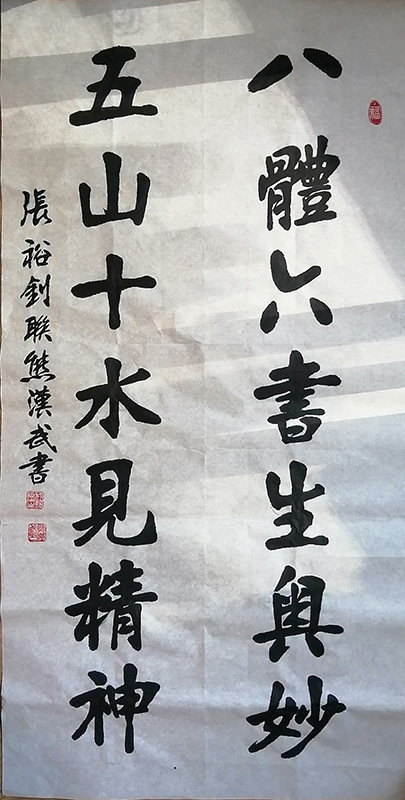 八體六書生奥妙
五山十水見精神
張裕釗聯熊漢武書